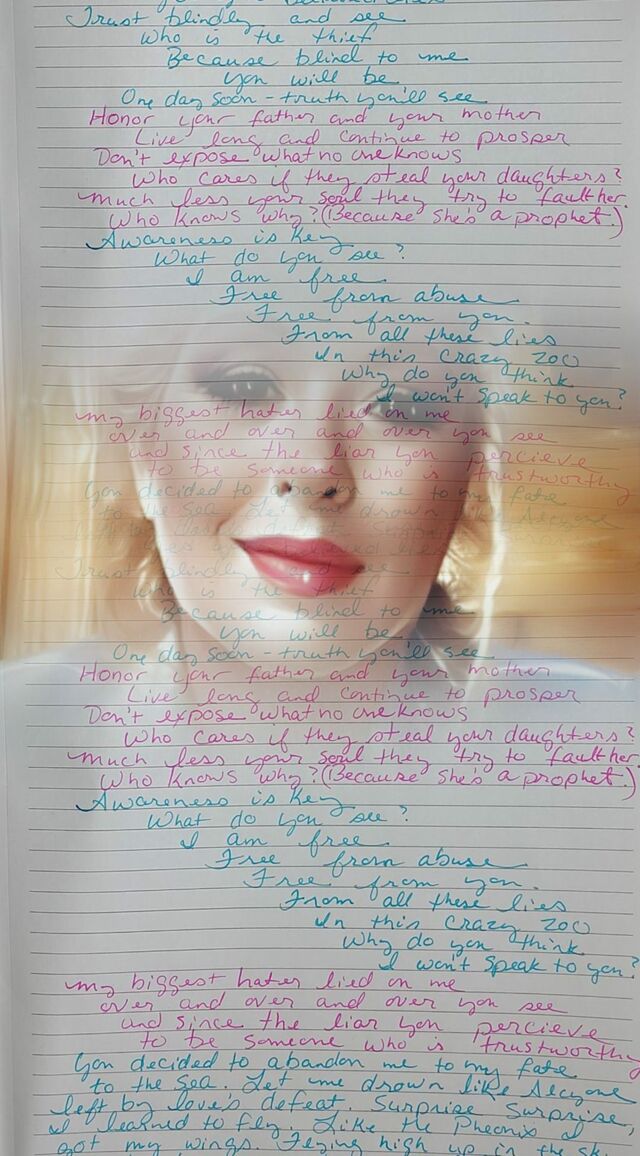 Trust blindly and see
Who is the thief
Because blind to me
you will be
One day soon - truth you'll see
Honor your father and your mother
Live long and continue to prosper
Don't expose what no one knows
Who cares if they steal your daughters?
Much less your soul they try to fault her.
Who knows why? (Because she's a prophet.)
Awareness is Key
What do you see?
I am free
Free from abuse
Free from you.
From all these lies
In this crazy zoo
Why do you think
I won't speak to you?
My biggest hater lied on me
over and over and over you see
and since the liar you percieve
to be someone who is trustworthy
You decided to abandon me to my fate
to the Sea. Let me drown like Alcyone
left by love's defeat. Surprise
Trust blindly and see
Who is the thief
Because blind to me
you will be
One day soon - truth you'll see
Honor your father and your mother
Live long and continue to prosper
Don't expose what no one knows
Who cares if they steal your daughters?
Much less your soul they try to fault her.
Who knows why? (Because she's a prophet.)
Awareness is Key
What do you see?
I am free
Free from abuse
Free from you.
From all these lies
In this crazy zoo
Why do you think
I won't speak to you?
My biggest hater lied on me
over and over and over you see
and since the liar you percieve
to be someone who is trustworthy
You decided to abandon me to my fate
to the Sea. Let me drown like Alcyone
left by love's defeat. Surprise Surprise,
I learned to fly. Like the Pheonix I
got my wings. Flying high up in the